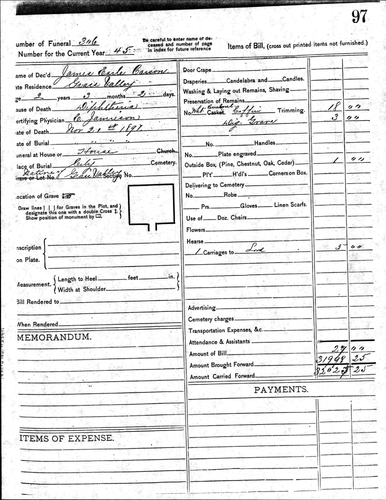 97
Number of Funeral 346
Number of the Current Year 45
Be carefull to enter name of deceased and number of page in index for future reference
Items of Bill, (cross out printed items not furnished.)
Name of Dec'd James Earle
late Residence Grass Valley
Age 2 years 3 months 2 days
Cause of Death Diphtheria
Certifying Physician C. Jameson
Date of Death Nov 20th 1897
Date of Burial
Funeral at House or House Church.
Place of Burial City Cemetery.
Grave or Lot No. Native of Grass Valley
Location of Grave
Draw lines [ ] for Graves in the Plot, and designate this one with a double Cross
Show position of monument by
Inscription
on Plate.
Measurement. Length to Heel feet in.
Width at Shoulder
Bill Rendered to
When Rendered
MEMORANDUM.
ITEMS OF EXPENSE.
Door Crape
Draperies Candelabra and Candles.
Washing & Laying out Remains, Shaving
Preservation of Remains
Casket Coffin Trimming. 18 00
Dig Grave 3 00
No. Handles
Plate engraved
Outside Box, (Pine, Chestnut, Oak, Cedar) 1 00
P'l'Y H'd'l's Corners on Box.
Delivering to Cemetery
No. Robe
Prs. Gloves Linen Scarfs.
Use of Doz. Chairs
Flowers
Hearse
1 Carriages to 5 00
Advertising
Cemetery charges
Transportation Expenses, &c.
Attendance & Assistants
Amount of Bill 27 00
Amount Brought Forward 31948 25
Amount Carried Forward 25
PAYMENTS.